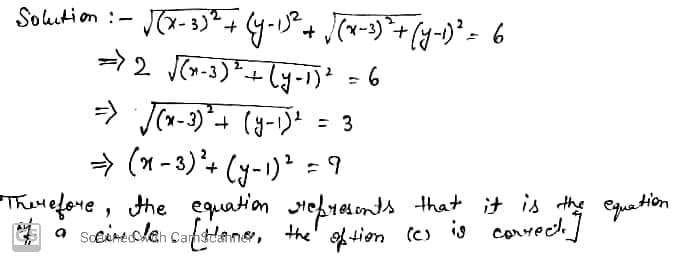 Solution :- √(x-3)²+(y-1)² + √(x-3)²+(y-1)² = 6
⇒ 2 √(x-3)²+(y-1)² = 6
⇒ √(x-3)²+(y-1)² = 3
⇒ (x-3)²+(y-1)² = 9
Therefore, the equation represents that it is the equation
of a circle. [Hence, the option (c) is correct.]
CS Scanned with CamScanner